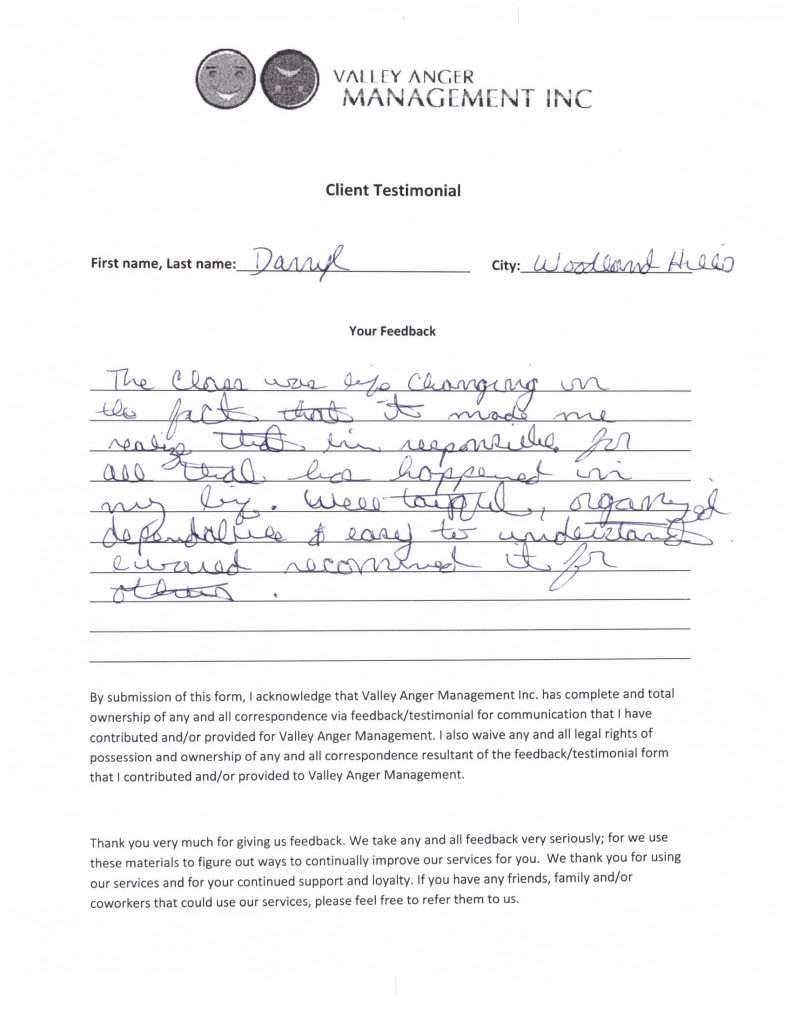 VALLEY ANGER
MANAGEMENT INC
Client Testimonial
First name, Last name: Darryl City: Woodland Hills
Your Feedback
The Class was life changing in
the fact that it made me
realize that im responsible for
all that has happened in
my life. Well taught, organized
dependable & easy to understand
I would recommend it for
others.
By submission of this form, I acknowledge that Valley Anger Management Inc. has complete and total
ownership of any and all correspondence via feedback/testimonial for communication that I have
contributed and/or provided for Valley Anger Management. I also waive any and all legal rights of
possession and ownership of any and all correspondence resultant of the feedback/testimonial form
that I contributed and/or provided to Valley Anger Management.
Thank you very much for giving us feedback. We take any and all feedback very seriously; for we use
these materials to figure out ways to continually improve our services for you. We thank you for using
our services and for your continued support and loyalty. If you have any friends, family and/or
coworkers that could use our services, please feel free to refer them to us.